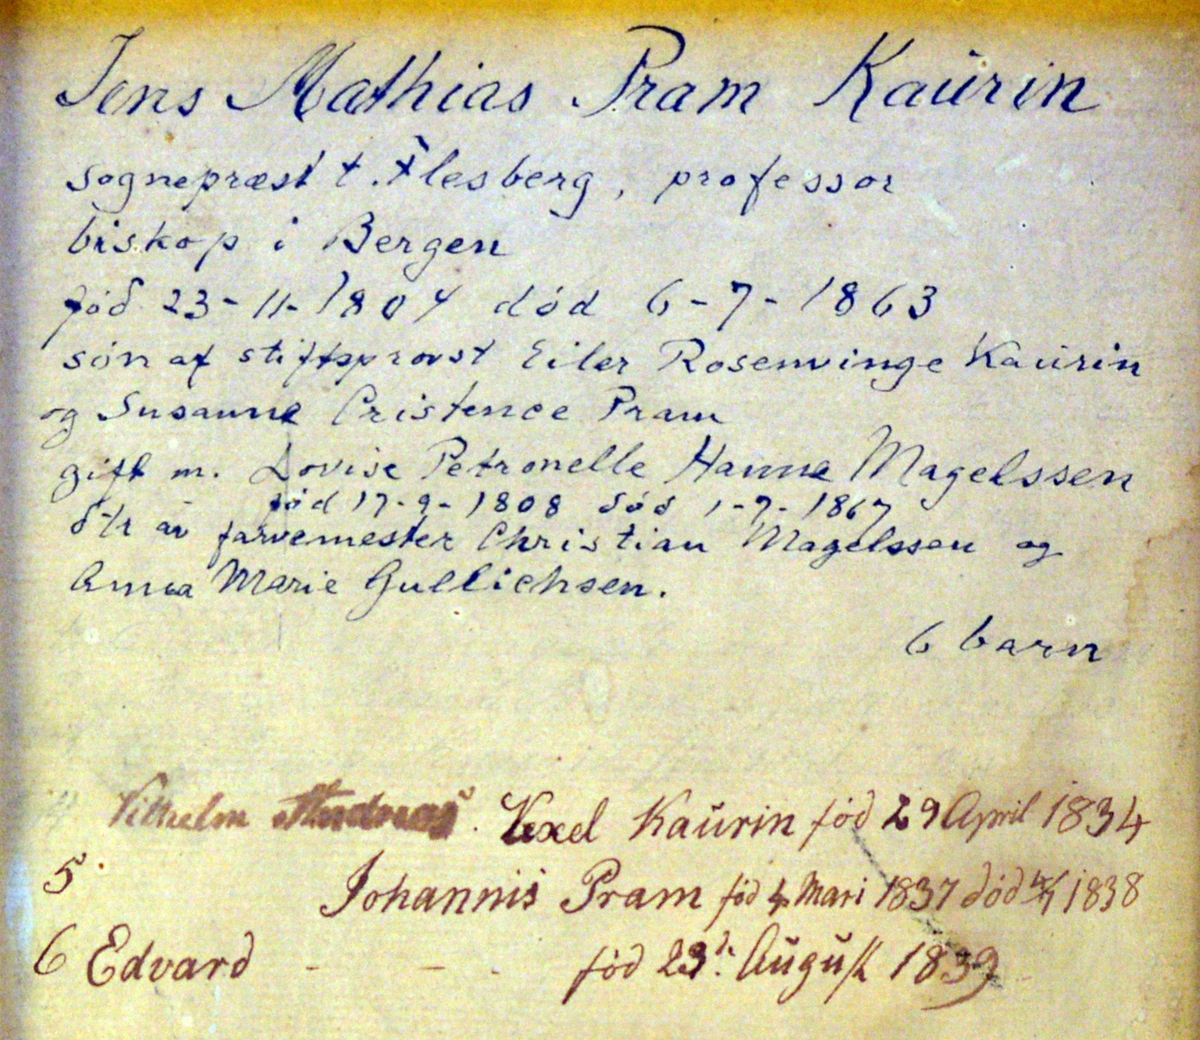 Jens Mathias Pram Kaurin
sognepræst t. Flesberg, professor
biskop i Bergen
fød 23-11-1804 død 6-7-1863
søn af stiftsprovst Eiler Rosenvinge Kaurin
og Susanne Cristence Pram
gift m. Lovise Petronelle Hanna Magelssen
fød 17-9-1808 død 1-7-1867
dtr av farvemester Christian Magelssen og
Anna Marie Gullichsen.
6 barn
Vilhelm Andreas Vexel Kaurin fød 29 April 1834
5 Johannis Pram fød 4 Mari 1837 død 1838
6 Edvard - - - fød 23de August 1839